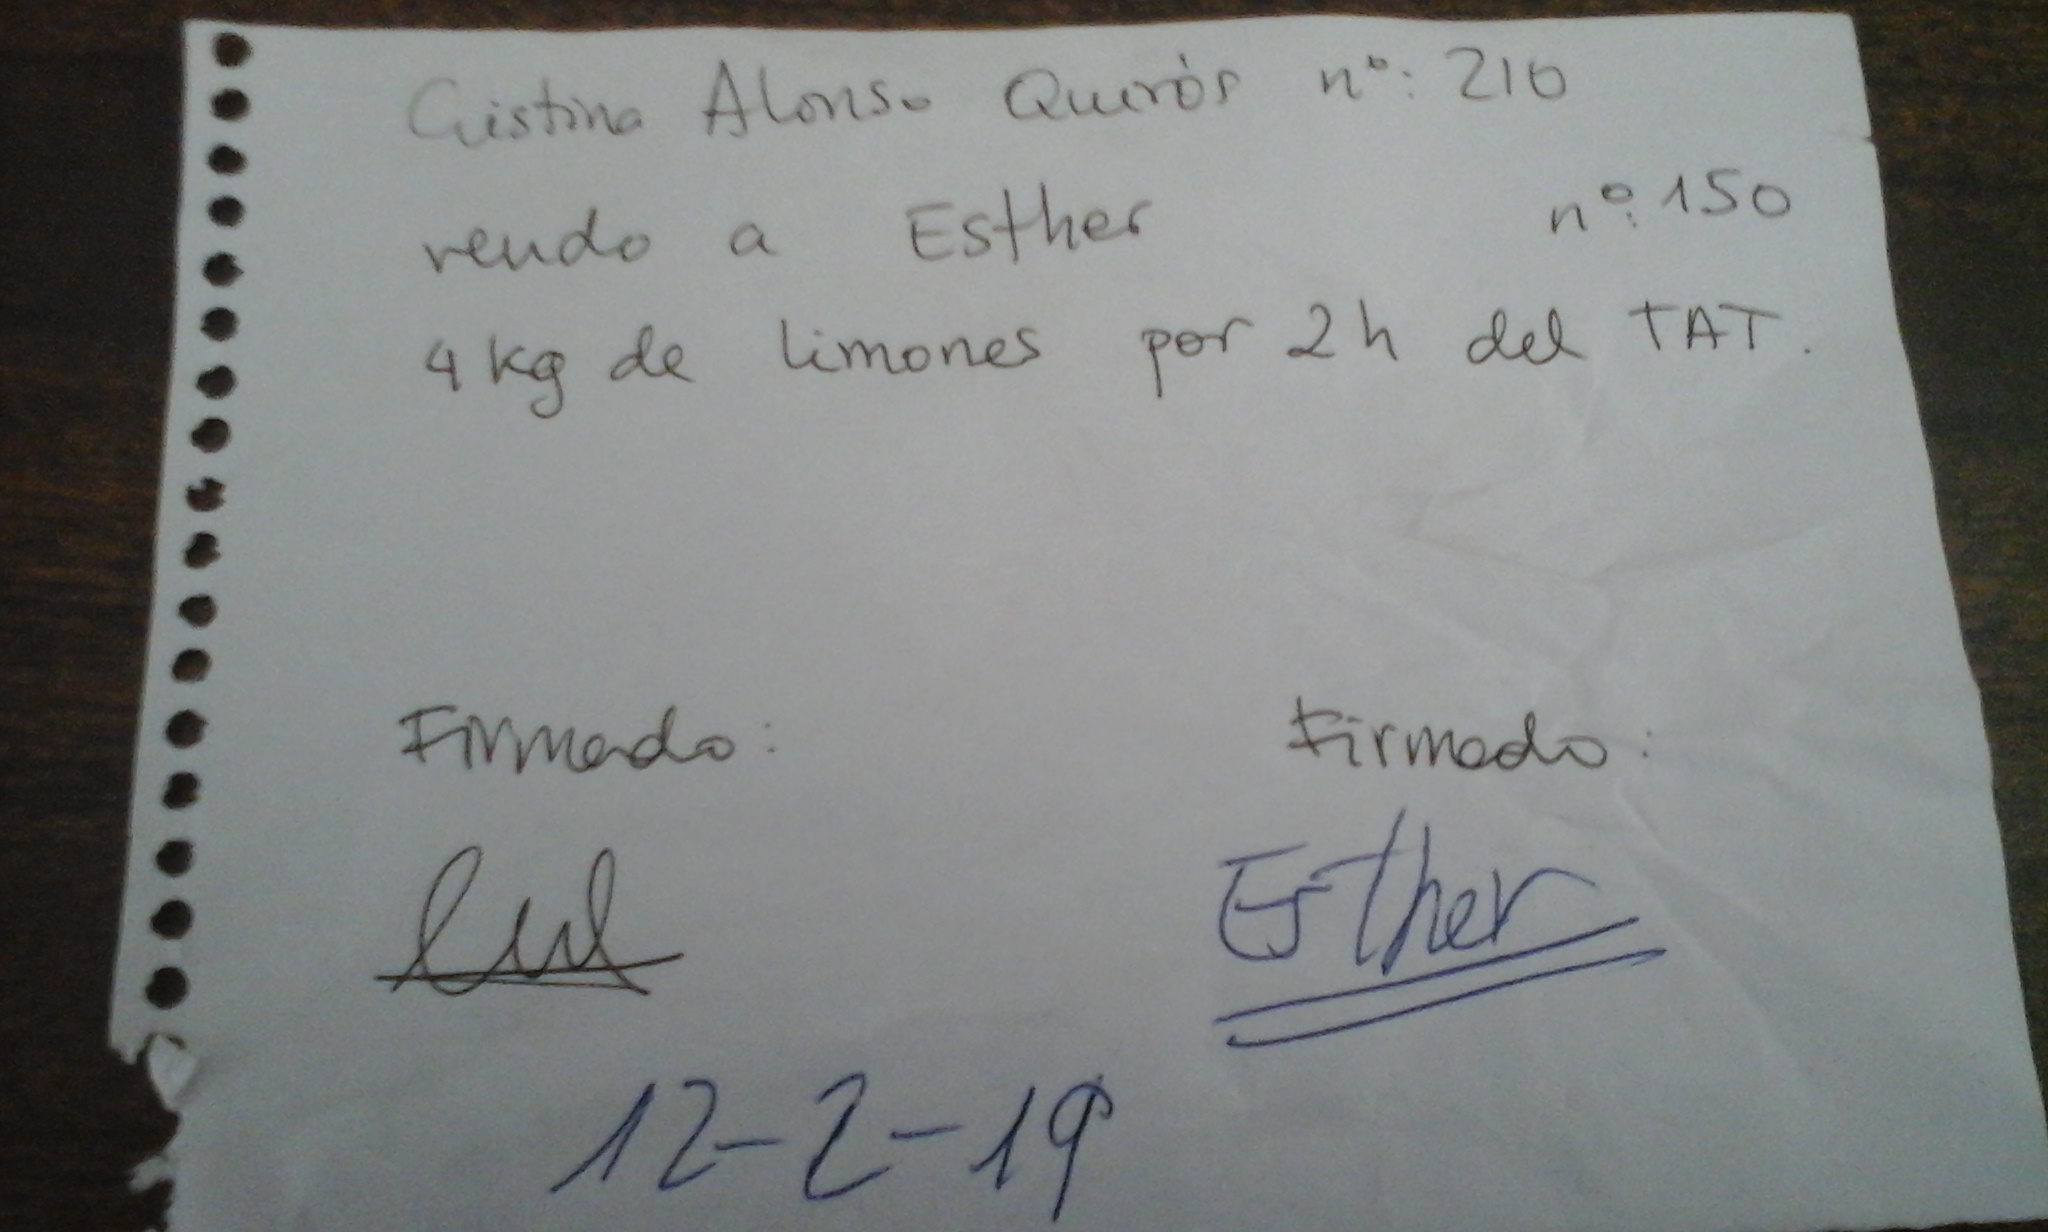 Cristina Alonso Quirós nº: 210
vendo a Esther nº: 150
4 kg de limones por 2 h del TAT.
Firmado: Firmado:
Esther
12-2-19